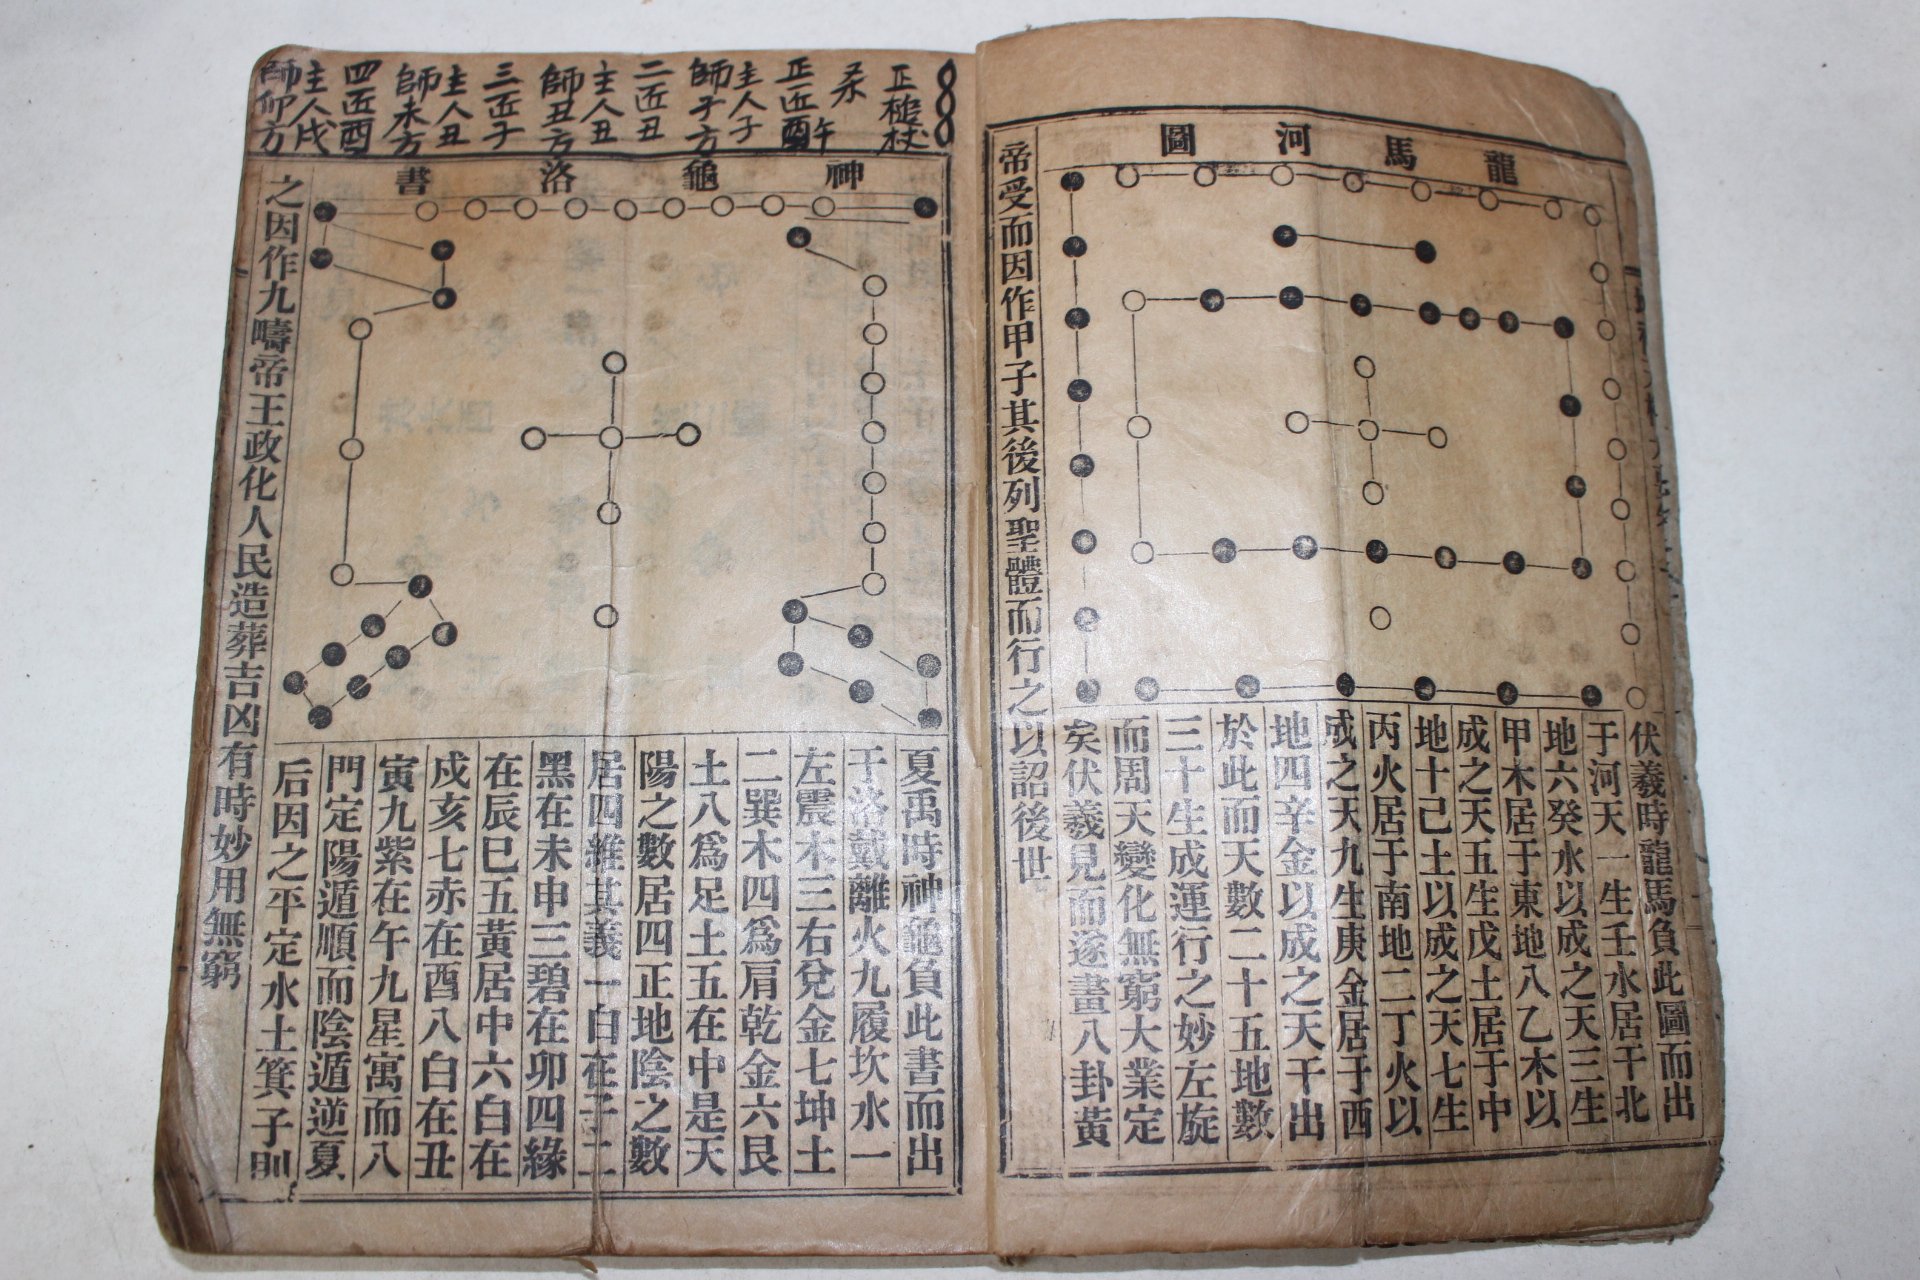 龍馬河圖
伏羲時龍馬負此圖而出
于河天一生壬水居于北
地六癸水以成之天三生
甲木居于東地八乙木以
成之天五生戊土居于中
地十己土以成之天七生
丙火居于南地二丁火以
成之天九生庚金居于西
地四辛金以成之天干出
於此而天數二十五地數
三十生成運行之妙左旋
而周天變化無窮大業定
矣伏羲見而遂畫八卦黃
帝受而因作甲子其後列聖體而行之以詔後世
正槌杖
矛午
正近酉
主人子
師子方
二近丑
主人丑
師丑方
三近子
主人丑
師未方
四近酉
主人戌
師卯方
神龜洛書
夏禹時神龜負此書而出
于洛戴離火九履坎水一
左震木三右兌金七坤土
二巽木四爲肩乾金六艮
土八爲足土五在中是天
陽之數居四正地陰之數
居四維其義一白在子二
黑在未申三碧在卯四緣
在辰巳五黃居中六白在
戍亥七赤在酉八白在丑
寅九紫在午九星寓而八
門定陽遁順而陰遁逆夏
后因之平定水土箕子則
之因作九疇帝王政化人民造葬吉凶有時妙用無窮